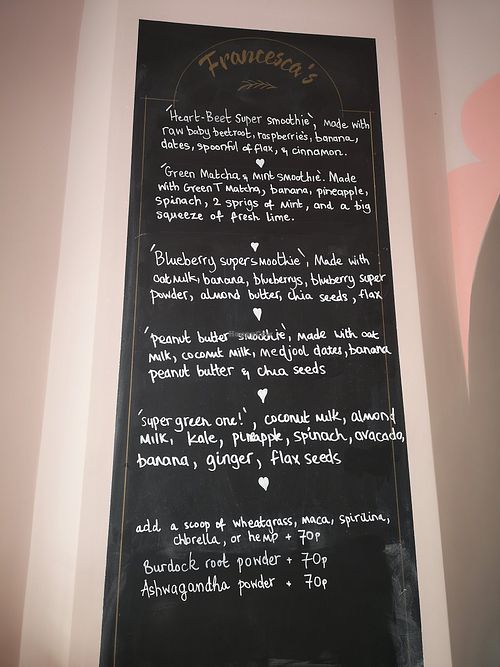 Francesca's
'Heart-Beet Super smoothie', Made with
raw baby beetroot, raspberries, banana,
dates, spoonful of flax, & cinnamon.
'Green Matcha & Mint smoothie'. Made
with Green T Matcha, banana, pineapple,
spinach, 2 sprigs of Mint, and a big
squeeze of fresh lime.
'Blueberry supersmoothie', Made with
oat milk, banana, blueberrys, blueberry super
powder, almond butter, chia seeds, flax
'peanut butter smoothie', made with oat
milk, coconut milk, medjool dates, banana
peanut butter & chia seeds
'super green one!', coconut milk, almond
milk, kale, pineapple, spinach, avocado,
banana, ginger, flax seeds
add a scoop of wheatgrass, maca, spirilina,
chlorella, or hemp + 70p
Burdock root powder + 70p
Ashwagandha powder + 70p